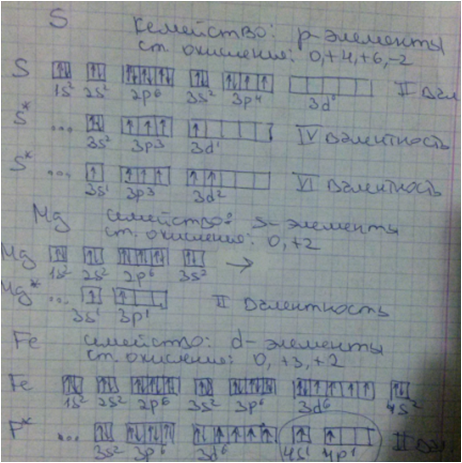 S Семейство: р-элементы
ст. окисления: 0, +4, +6, -2
S 1s² 2s² 2p⁶ 3s² 3p⁴ 3d⁰ II вал
S* ... 3s² 3p³ 3d¹ IV валентность
S* ... 3s¹ 3p³ 3d² VI валентность
Mg семейство: s-элементы
ст. окисления: 0, +2
Mg 1s² 2s² 2p⁶ 3s² →
Mg* ... 3s¹ 3p¹ II валентность
Fe семейство: d-элементы
ст. окисления: 0, +3, +2
Fe 1s² 2s² 2p⁶ 3s² 3p⁶ 3d⁶ 4s²
F* ... 3s² 3p⁶ 3d⁶ 4s¹ 4p¹ II вал